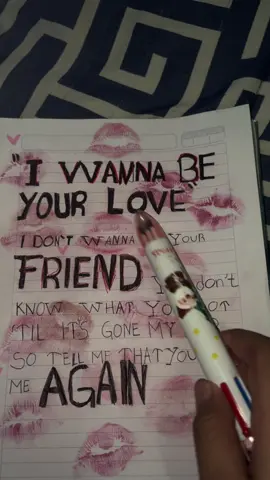 "I WANNA BE
YOUR LOVE"
I DON'T WANNA YOUR
FRIEND don't
KNOW WHAT
'TIL IT'S GONE MY
SO TELL ME THAT YOU
ME AGAIN